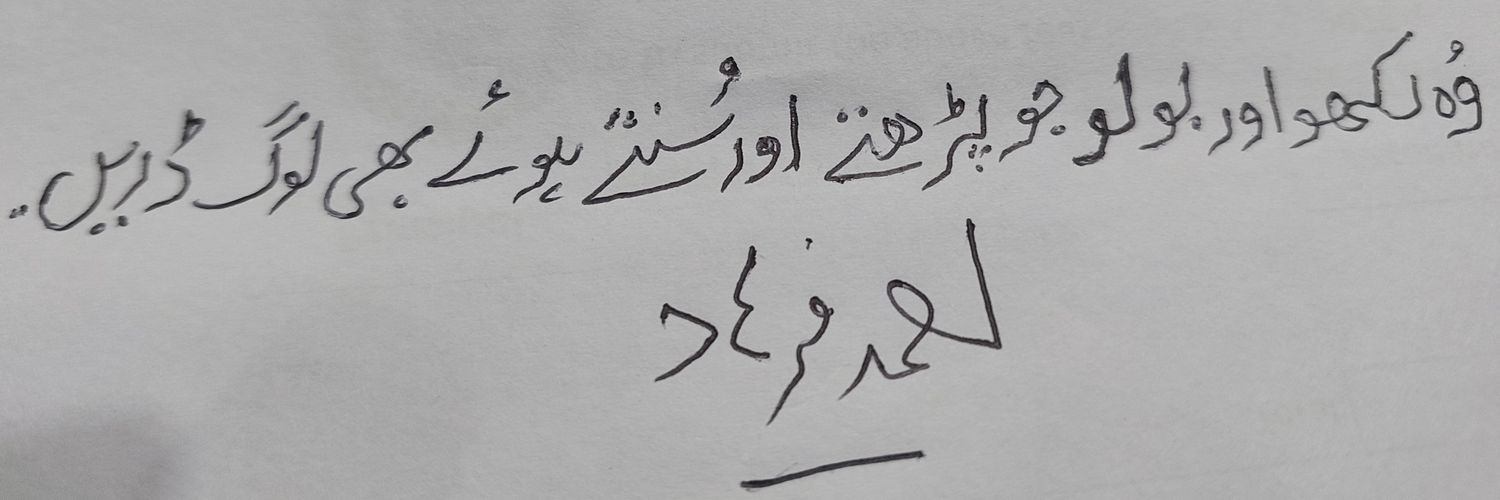 وُہ لکھو اور بولو جو پڑھتے اور سُنتے ہوئے بھی لوگ ڈریں۔
احمد فرہاد